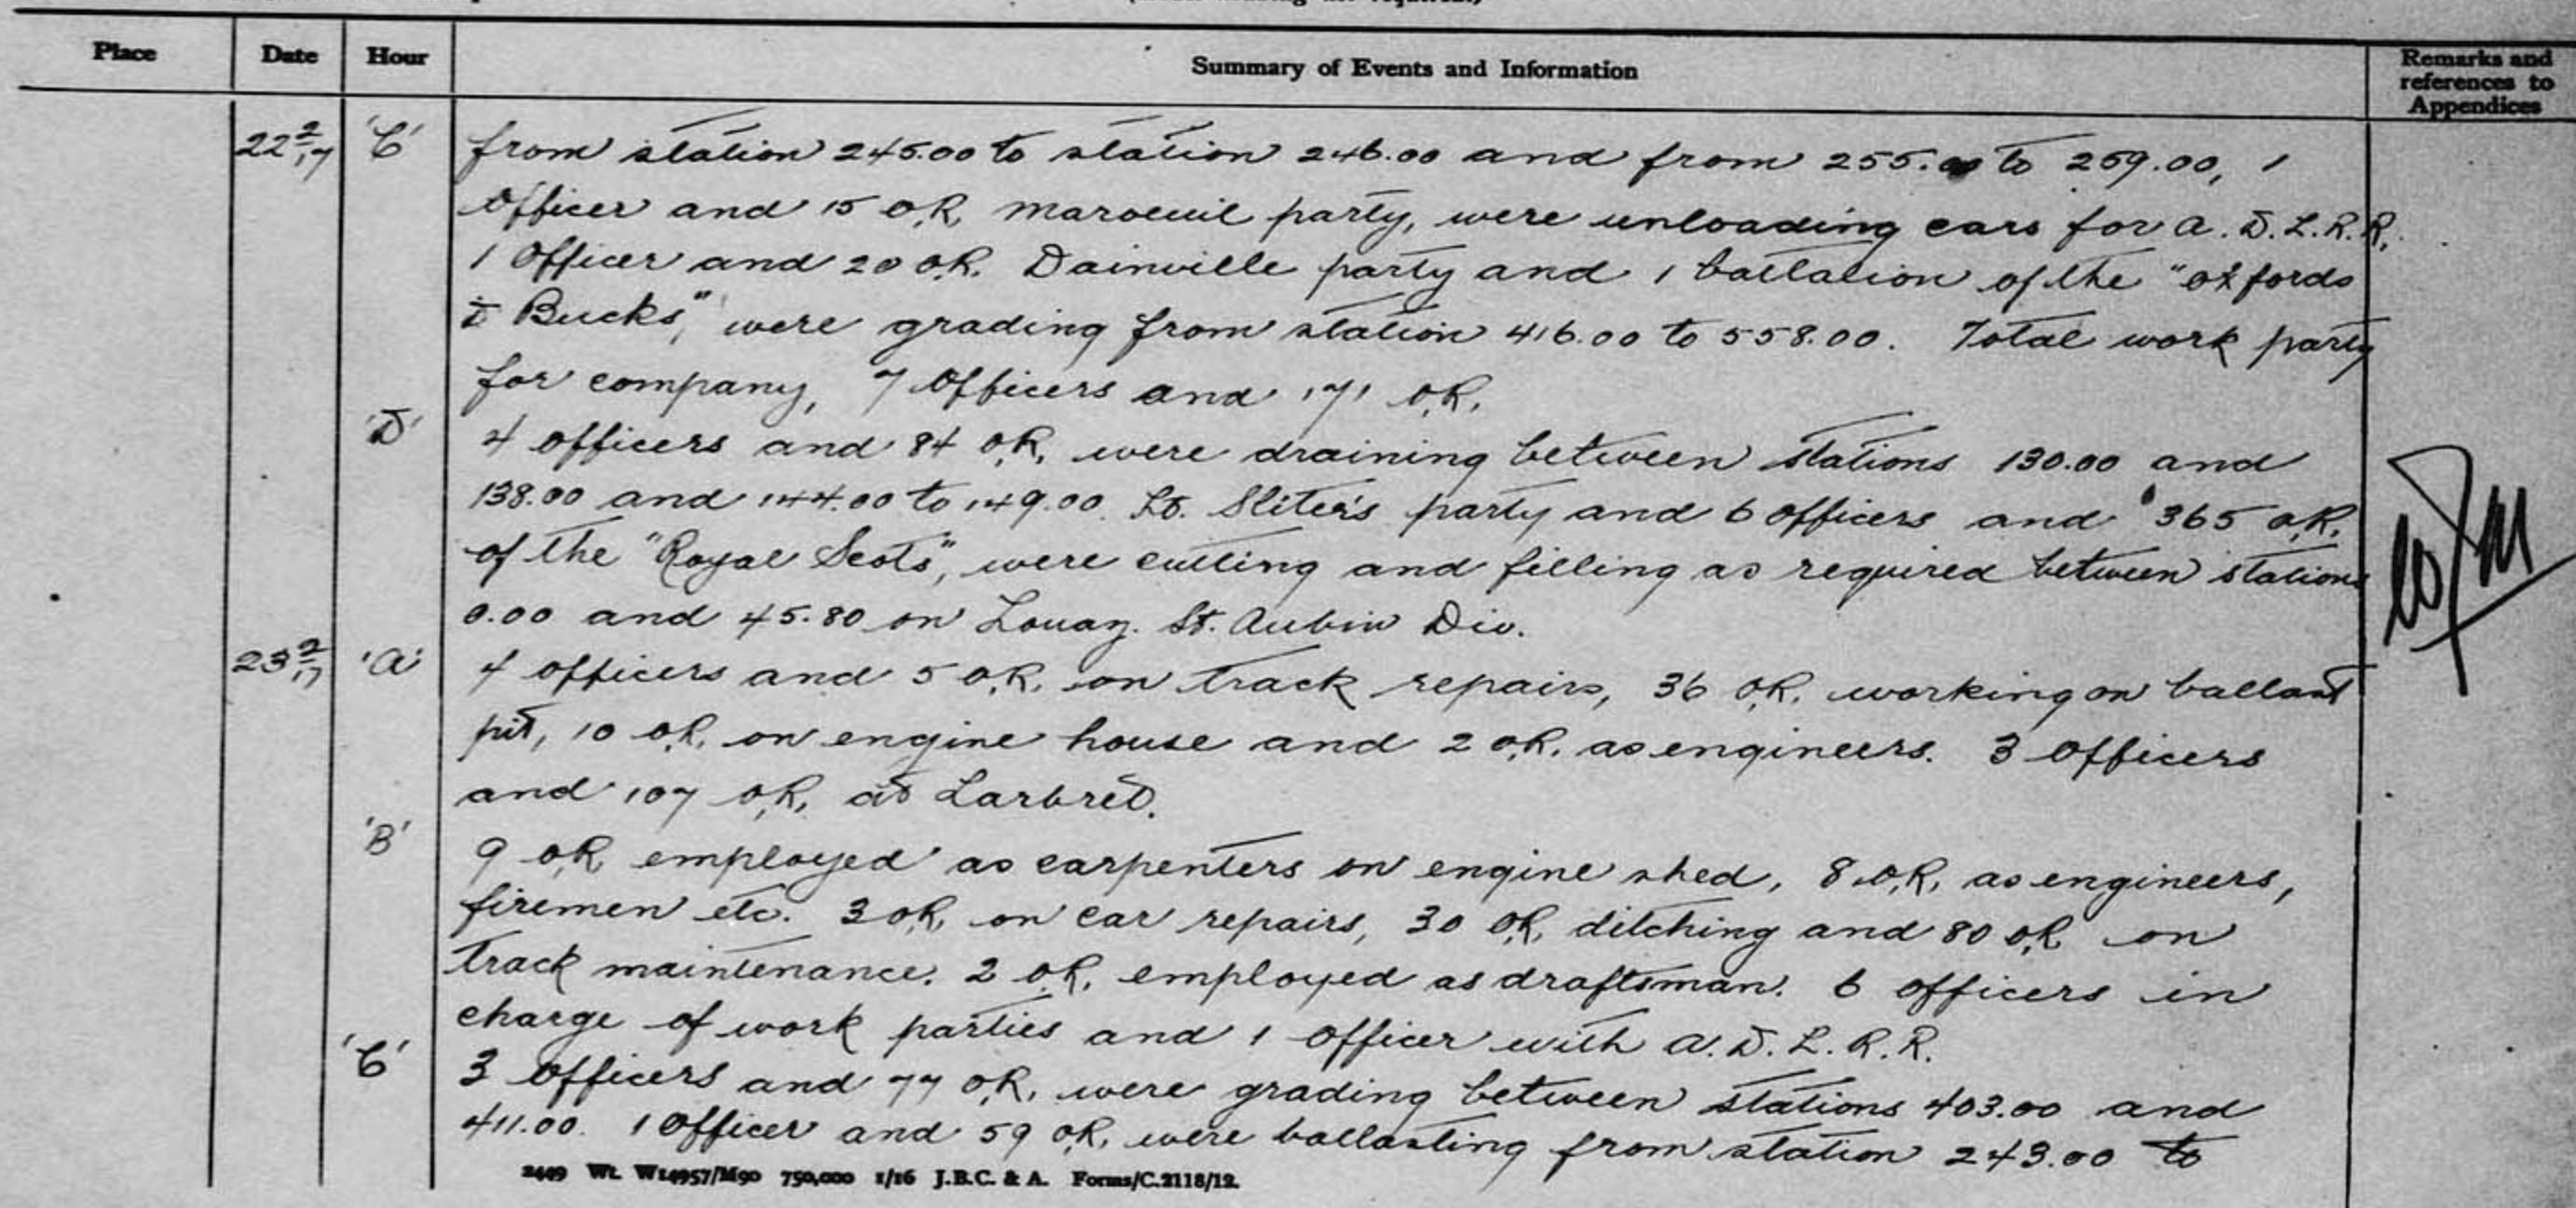 Place Date Hour Summary of Events and Information Remarks and references to Appendices
22 2/17 'C' from station 245.00 to station 246.00 and from 255.00 to 259.00, 1
Officer and 15 O.R. Maroeuil party, were unloading cars for A.D.L.R.R.
1 Officer and 20 O.R. Dainville party and 1 battalion of the "Oxfords
& Bucks", were grading from station 416.00 to 558.00. Total work party
for company, 7 Officers and 171 O.R.
'D' 4 officers and 84 O.R. were draining between stations 130.00 and
138.00 and 144.00 to 149.00. Lt. Sliter's party and 6 officers and 365 O.R.
of the "Royal Scots", were cutting and filling as required between stations
0.00 and 45.80 on Louaz. St. Aubin Div.
23 2/17 'A' 4 officers and 5 O.R. on track repairs, 36 O.R. working on ballast
pit, 10 O.R. on engine house and 2 O.R. as engineers. 3 Officers
and 107 O.R. at Larbret.
'B' 9 O.R. employed as carpenters on engine shed, 8 O.R. as engineers,
firemen etc. 3 O.R. on car repairs, 30 O.R. ditching and 80 O.R. on
track maintenance. 2 O.R. employed as draftsman. 6 officers in
charge of work parties and 1 Officer with A.D.L.R.R.
'C' 3 Officers and 77 O.R. were grading between stations 403.00 and
411.00. 1 Officer and 59 O.R. were ballasting from station 243.00 to
2449 Wt. W14957/M90 750,000 1/16 J.B.C. & A. Forms/C.2118/12.